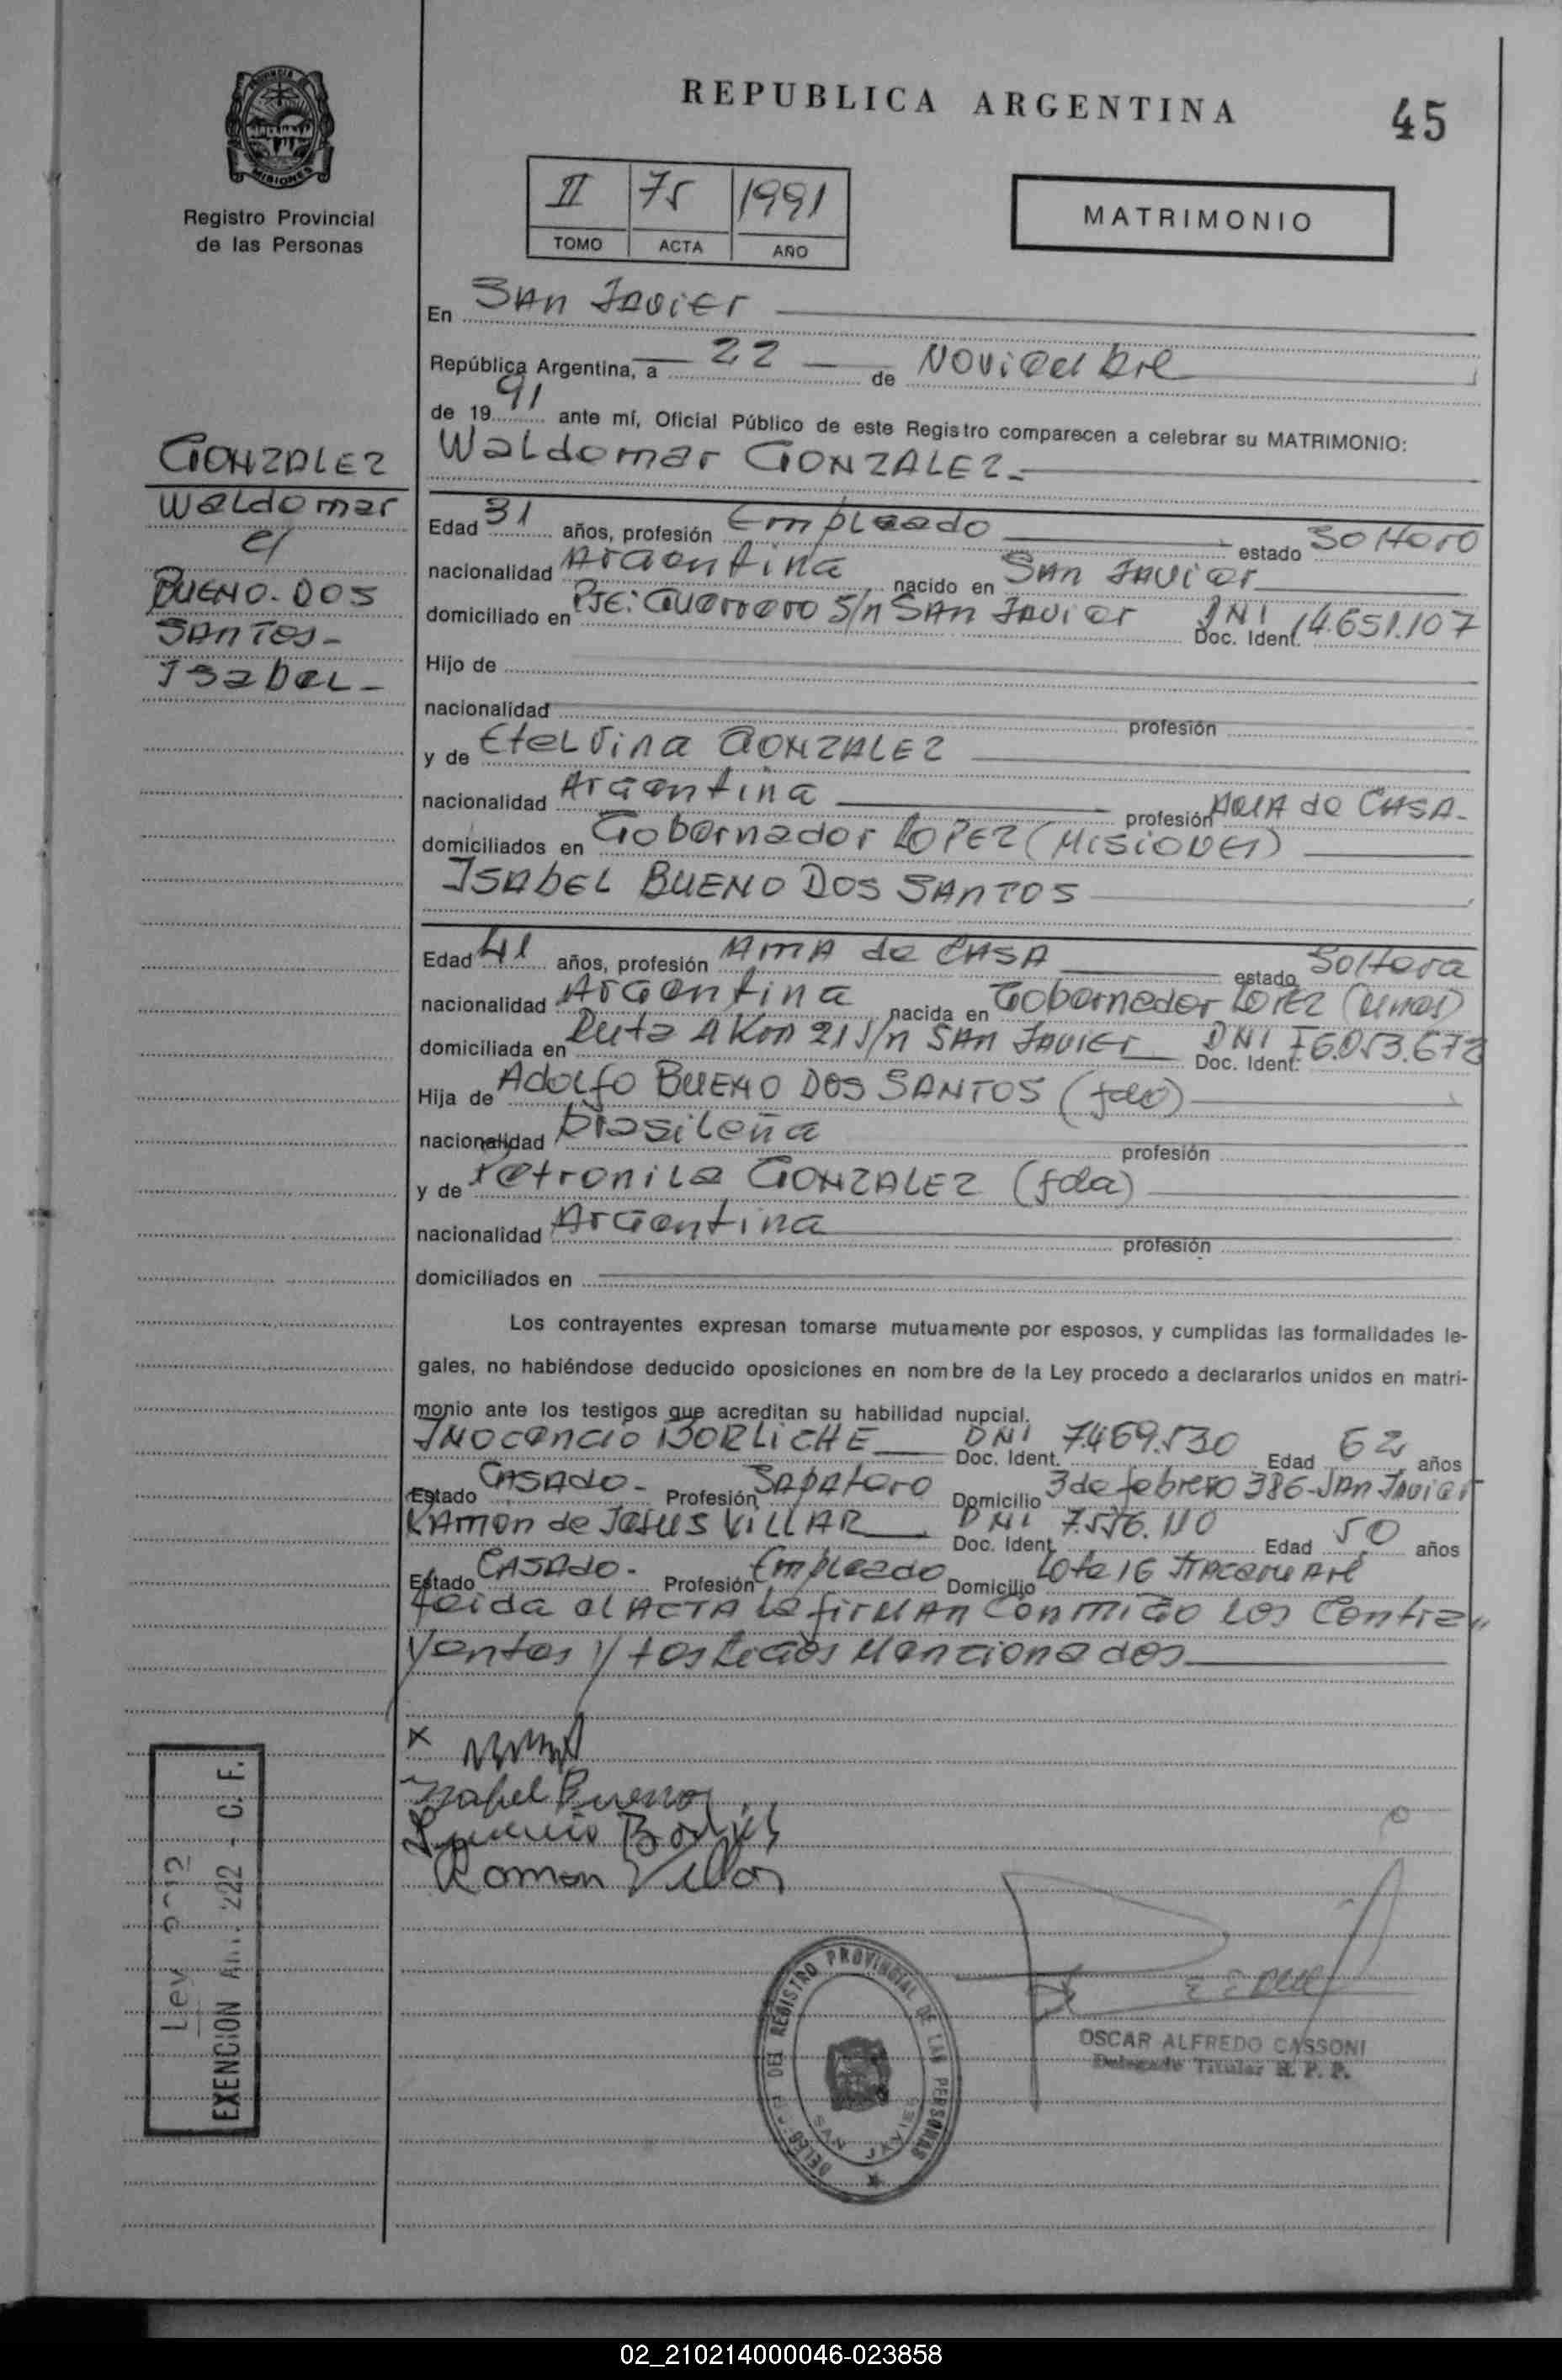 REPUBLICA ARGENTINA
45
MISIONES
Registro Provincial
de las Personas
II 75 1991
TOMO ACTA AÑO
MATRIMONIO
En San Javier
República Argentina, a 22 de Noviembre
de 1991 ante mí, Oficial Público de este Registro comparecen a celebrar su MATRIMONIO:
Waldomar GONZALEZ-
GONZALEZ
Waldomar
c/
BUENO-DOS
SANTOS-
Isabel-
Edad 31 años, profesión Empleado estado Soltero
nacionalidad Argentina nacido en San Javier
domiciliado en Pje: Guerrero S/n San Javier DNI Doc. Ident. 14.651.107
Hijo de
nacionalidad profesión
y de Etelvina GONZALEZ
nacionalidad Argentina profesión AMA de CASA-
domiciliados en Gobernador LOPEZ (Misiones)
ISABEL BUENO DOS SANTOS
Edad 41 años, profesión AMA de CASA estado Soltera
nacionalidad Argentina nacida en Gobernador LOPEZ
domiciliada en Ruta 4 Km 21 S/n San Javier DNI Doc. Ident. 6.053.672
Hija de Adolfo BUENO DOS SANTOS (fdo)
nacionalidad brasileña profesión
y de Petronila GONZALEZ (fda)
nacionalidad Argentina profesión
domiciliados en
Los contrayentes expresan tomarse mutuamente por esposos, y cumplidas las formalidades le-
gales, no habiéndose deducido oposiciones en nombre de la Ley procedo a declararlos unidos en matri-
monio ante los testigos que acreditan su habilidad nupcial.
INocencio BORLICHE DNI Doc. Ident. 7.469.530 Edad 62 años
Estado CASADO- Profesión Sapatero Domicilio 3 de febrero 386-San Javier
Ramon de Jesus VILLAR DNI Doc. Ident. 7.556.110 Edad 50 años
Estado CASADO- Profesión Empleado Domicilio Lote 16
Leida el ACTA la firman conmigo los contra"
yentes y testigos mencionados
x
Isabel Bueno
Ramon Villar
Ley
EXENCION Art. 222 - C. F.
DEL REGISTRO PROVINCIAL DE LAS PERSONAS
SAN JAVIER
OSCAR ALFREDO CASSONI
Delegado Titular R. P. P.
02_210214000046-023858